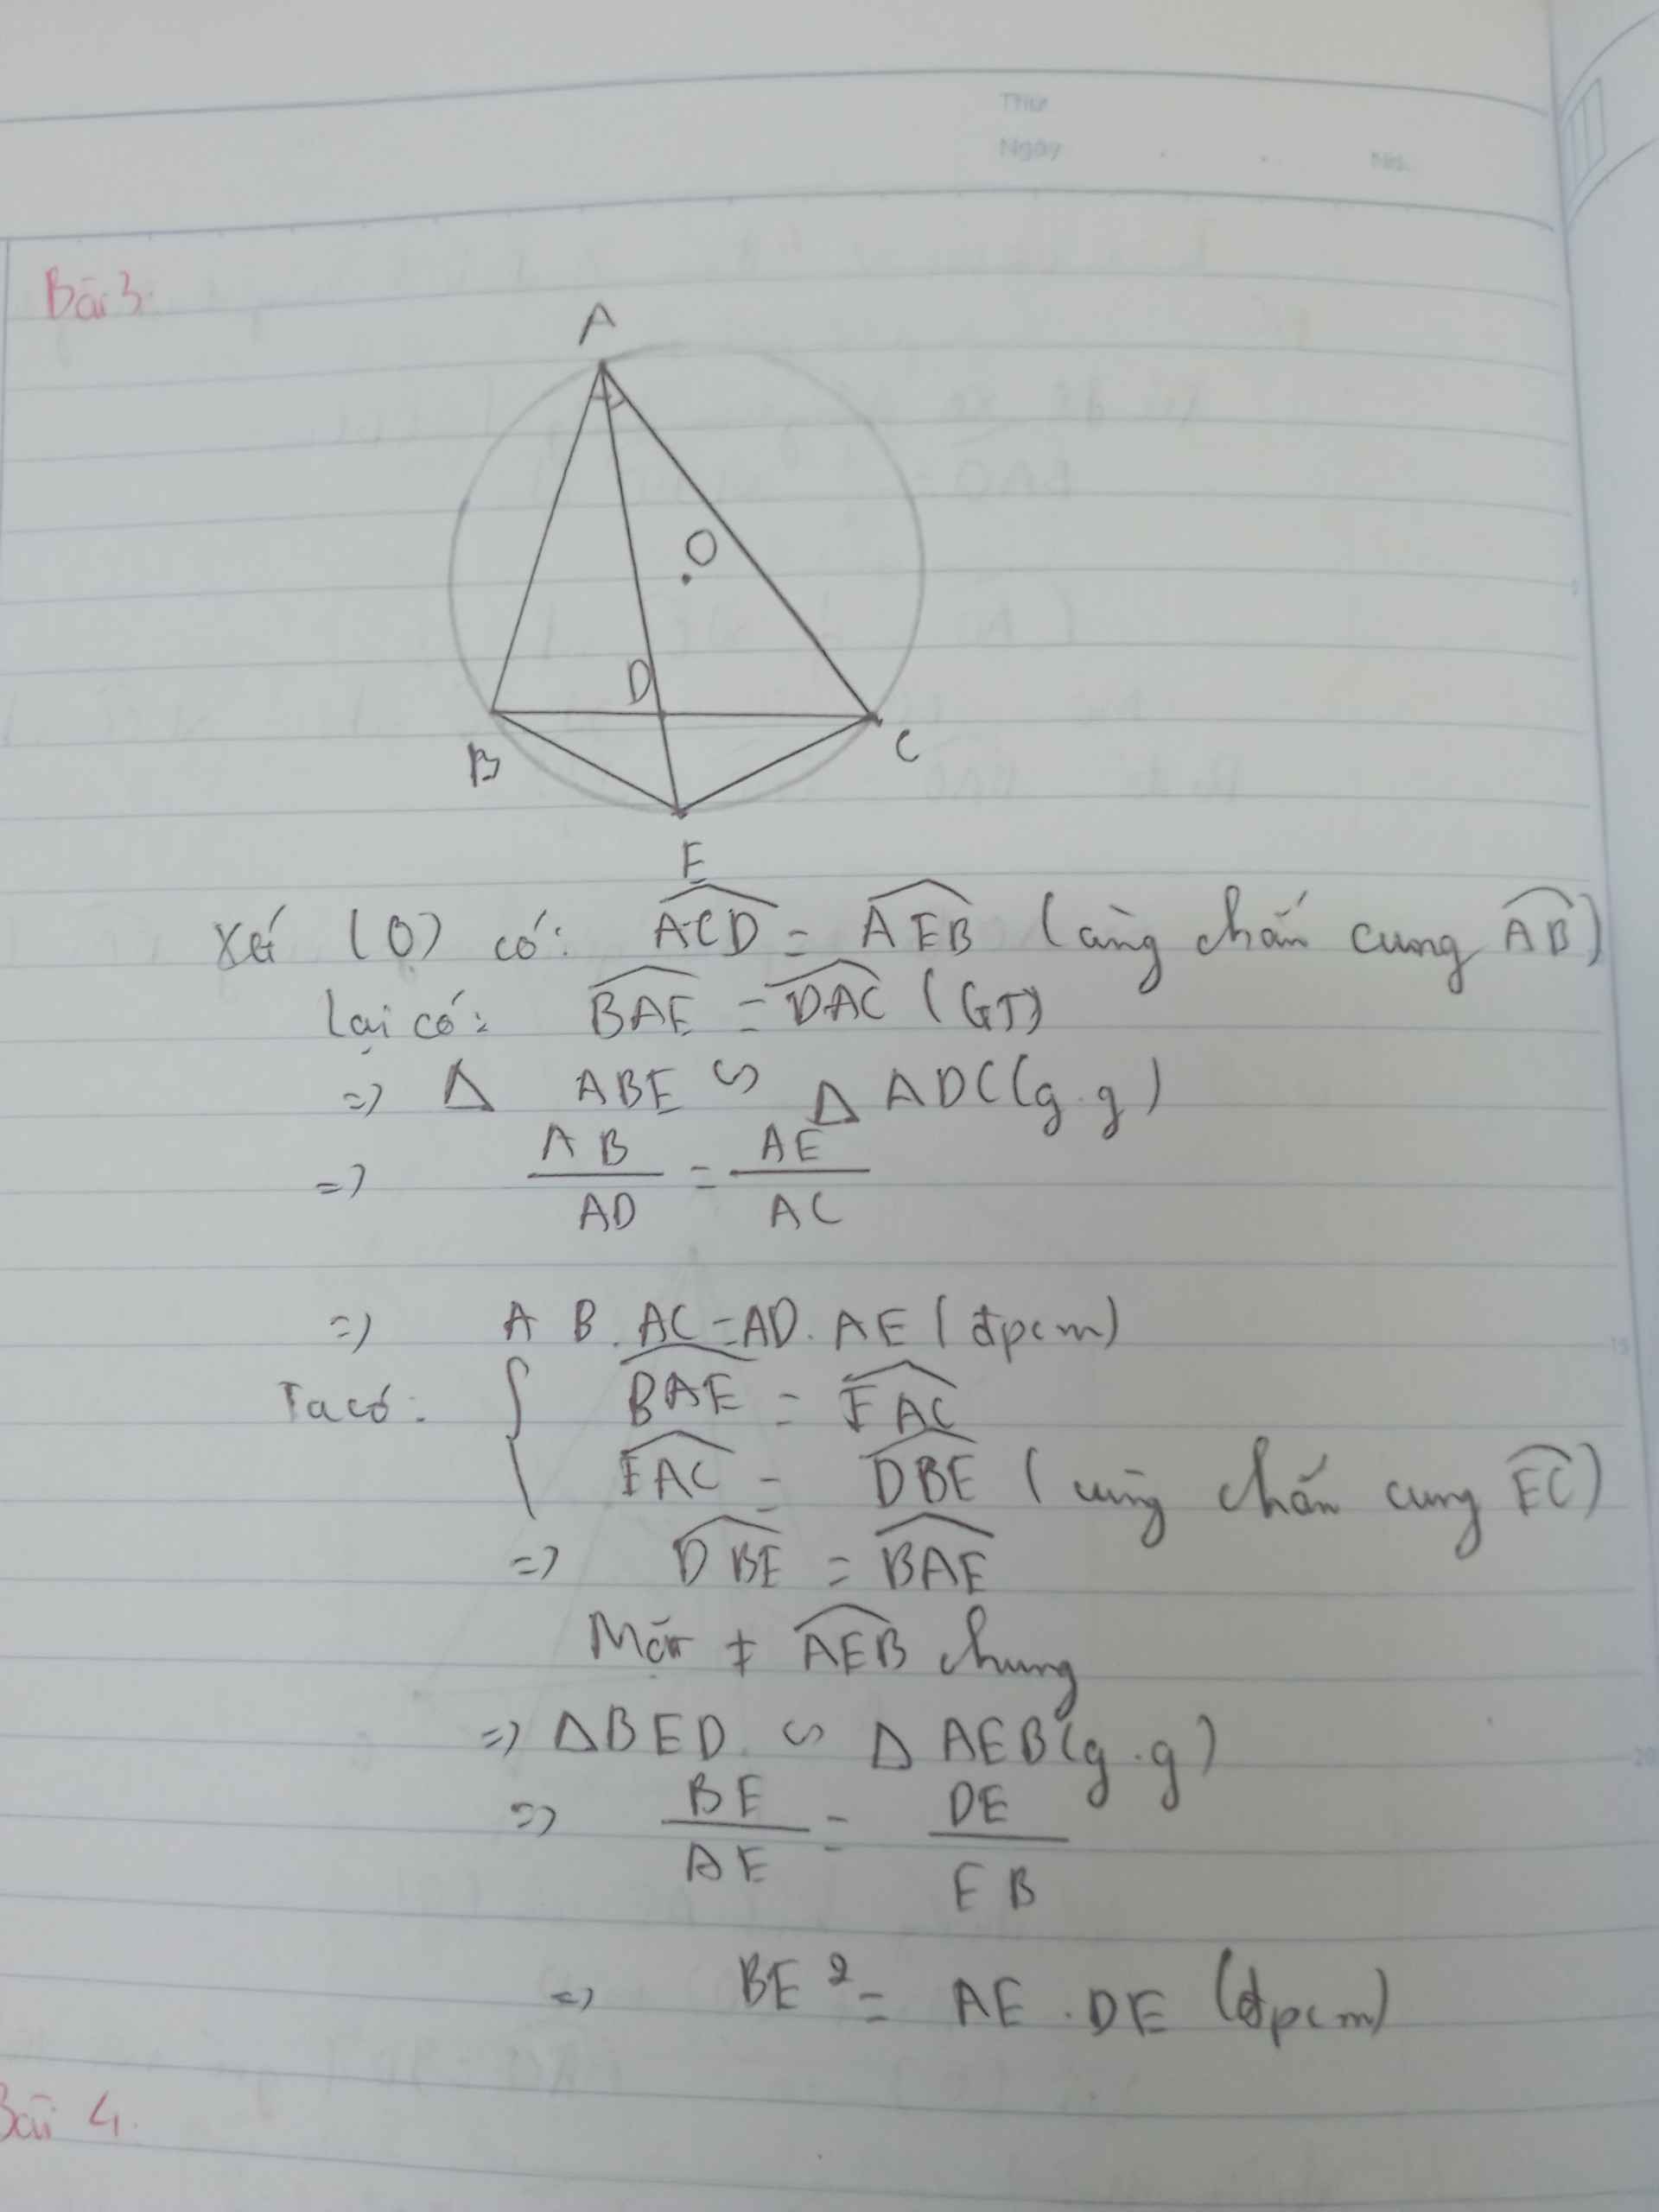 Thứ
Ngày . . No.
Bài 3:
A
O
D
B
C
E
Xét (O) có: ACD = AEB (cùng chắn cung AB)
Lại có: BAE = DAC (GT)
=> Δ ABE ∽ Δ ADC (g.g)
=> AB/AD = AE/AC
=> AB.AC=AD.AE (đpcm)
Ta có: { BAE = EAC
EAC = DBE (cùng chắn cung EC)
=> DBE = BAE
Mà AEB chung
=> ΔBED ∽ Δ AEB (g.g)
=> BE/AE = DE/EB
=> BE² = AE.DE (đpcm)
Bài 4.